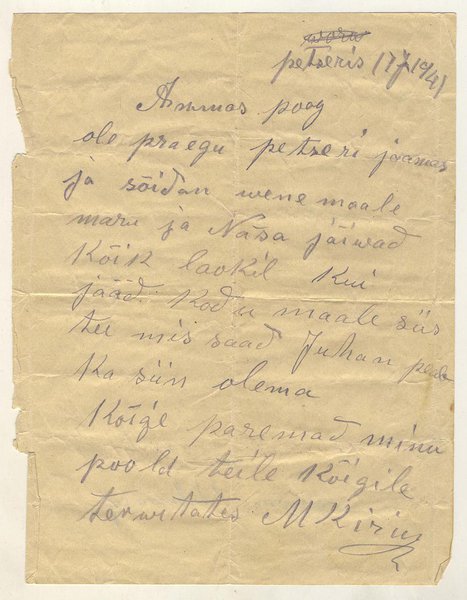 petseris 17/7 1941
Armas poeg
ole praegu petseri jaamas
ja sõidan wene maale
maru ja Nasa jäiwad
kõik laokil kui
jääd kodu maale siis
tee mis saad Juhan peab
ka siin olema
Kõige paremad minu
poold teile kõigile
terwitates MKirin